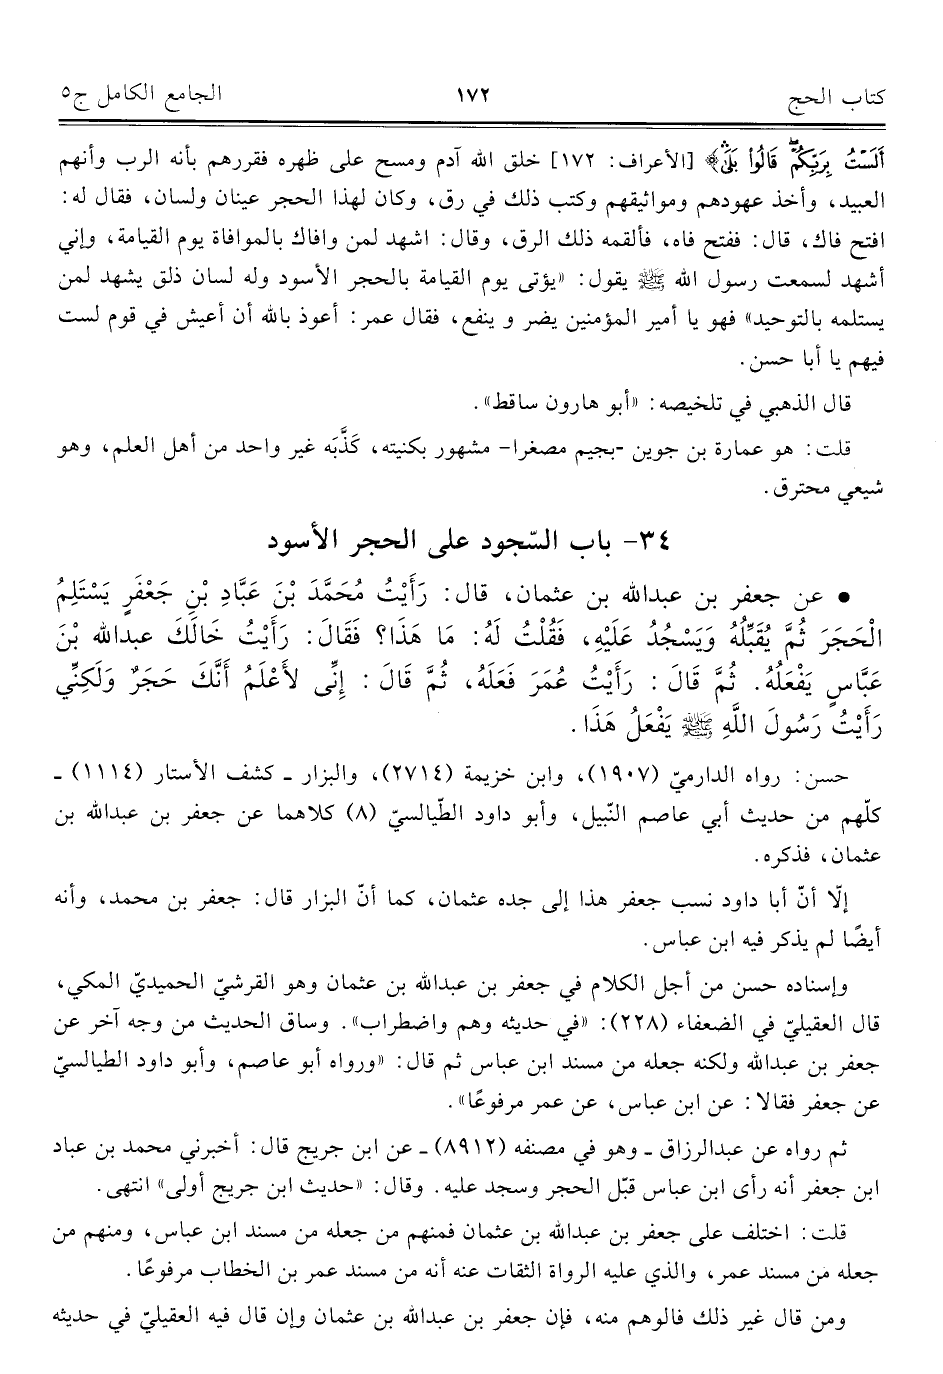 كتاب الحج ١٧٢ الجامع الكامل ج٥
أَلَسْتُ بِرَبِّكُمْ قَالُوا بَلَىٰ﴾ [الأعراف: ١٧٢] خلق الله آدم ومسح على ظهره فقررهم بأنه الرب وأنهم
العبيد، وأخذ عهودهم ومواثيقهم وكتب ذلك في رق، وكان لهذا الحجر عينان ولسان، فقال له:
افتح فاك، قال: ففتح فاه، فألقمه ذلك الرق، وقال: اشهد لمن وافاك بالموافاة يوم القيامة، وإني
أشهد لسمعت رسول الله ﷺ يقول: «يؤتى يوم القيامة بالحجر الأسود وله لسان ذلق يشهد لمن
يستلمه بالتوحيد» فهو يا أمير المؤمنين يضر و ينفع، فقال عمر: أعوذ بالله أن أعيش في قوم لست
فيهم يا أبا حسن.
قال الذهبي في تلخيصه: «أبو هارون ساقط».
قلت: هو عمارة بن جوين -بجيم مصغرا- مشهور بكنيته، كَذَّبَه غير واحد من أهل العلم، وهو
شيعي محترق.
٣٤- باب السّجود على الحجر الأسود
• عن جعفر بن عبدالله بن عثمان، قال: رَأَيْتُ مُحَمَّدَ بْنَ عَبَّادِ بْنِ جَعْفَرٍ يَسْتَلِمُ
الْحَجَرَ ثُمَّ يُقَبِّلُهُ وَيَسْجُدُ عَلَيْهِ، فَقُلْتُ لَهُ: مَا هَذَا؟ فَقَالَ: رَأَيْتُ خَالَكَ عبدالله بْنَ
عَبَّاسٍ يَفْعَلُهُ. ثُمَّ قَالَ: رَأَيْتُ عُمَرَ فَعَلَهُ، ثُمَّ قَالَ: إِنِّى لأَعْلَمُ أَنَّكَ حَجَرٌ وَلَكِنِّي
رَأَيْتُ رَسُولَ اللَّهِ ﷺ يَفْعَلُ هَذَا.
حسن: رواه الدارميّ (١٩٠٧)، وابن خزيمة (٢٧١٤)، والبزار ـ كشف الأستار (١١١٤) ـ
كلّهم من حديث أبي عاصم النّبيل، وأبو داود الطّيالسيّ (٨) كلاهما عن جعفر بن عبدالله بن
عثمان، فذكره.
إلّا أنّ أبا داود نسب جعفر هذا إلى جده عثمان، كما أنّ البزار قال: جعفر بن محمد، وأنه
أيضًا لم يذكر فيه ابن عباس.
وإسناده حسن من أجل الكلام في جعفر بن عبدالله بن عثمان وهو القرشيّ الحميديّ المكي،
قال العقيليّ في الضعفاء (٢٢٨): «في حديثه وهم واضطراب». وساق الحديث من وجه آخر عن
جعفر بن عبدالله ولكنه جعله من مسند ابن عباس ثم قال: «ورواه أبو عاصم، وأبو داود الطيالسيّ
عن جعفر فقالا: عن ابن عباس، عن عمر مرفوعًا».
ثم رواه عن عبدالرزاق ـ وهو في مصنفه (٨٩١٢) ـ عن ابن جريج قال: أخبرني محمد بن عباد
ابن جعفر أنه رأى ابن عباس قبّل الحجر وسجد عليه. وقال: «حديث ابن جريج أولى» انتهى.
قلت: اختلف على جعفر بن عبدالله بن عثمان فمنهم من جعله من مسند ابن عباس، ومنهم من
جعله من مسند عمر، والذي عليه الرواة الثقات عنه أنه من مسند عمر بن الخطاب مرفوعًا.
ومن قال غير ذلك فالوهم منه، فإن جعفر بن عبدالله بن عثمان وإن قال فيه العقيليّ في حديثه